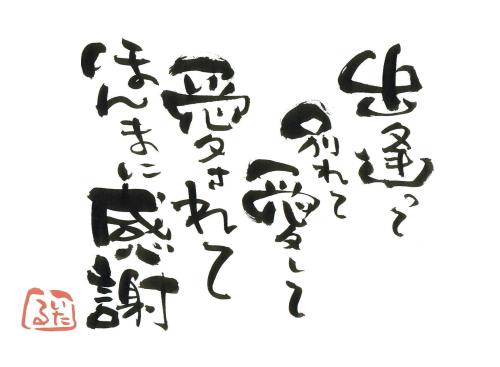 出逢って
別れて
愛して
愛されて
ほんまに感謝